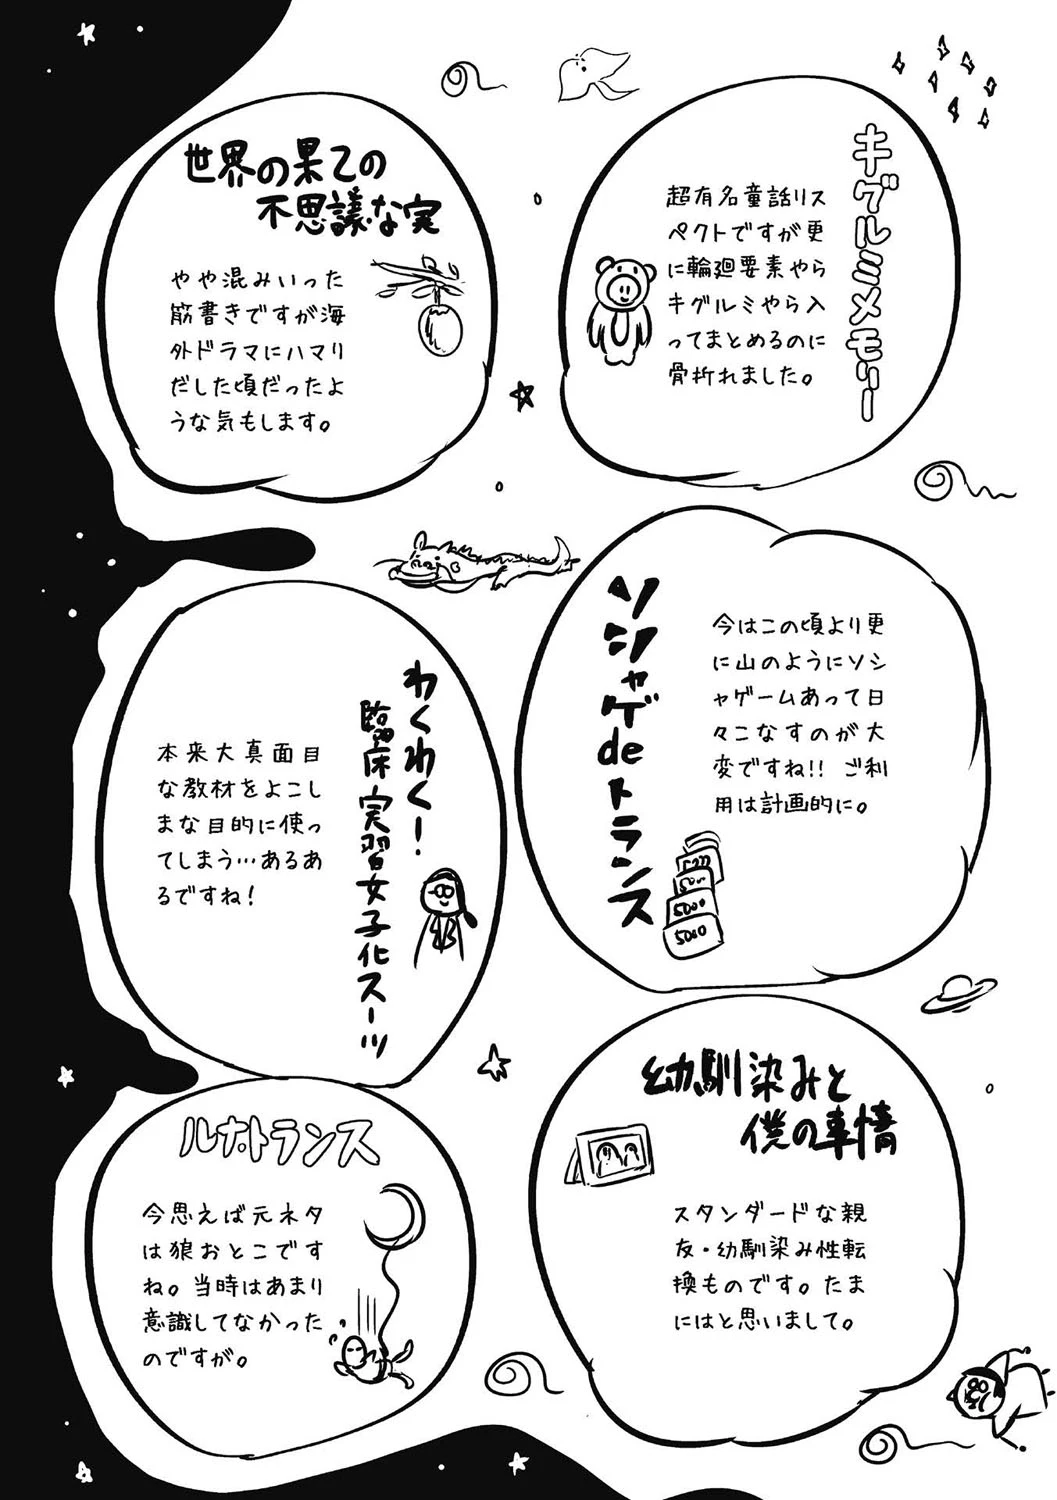 キグルミメモリー
超有名童話リス
ペクトですが更
に輪廻要素やら
キグルミやら入
ってまとめるのに
骨折れました。
世界の果ての
不思議な実
やや混みいった
筋書きですが海
外ドラマにハマり
だした頃だったよ
うな気もします。
ソシャゲdeトランス
今はこの頃より更
に山のようにソシ
ャゲームあって日
々こなすのが大
変ですね!! ご利
用は計画的に。
5000
5000
わくわく!
臨床実習女子化スーツ
本来大真面目
な教材をよこし
まな目的に使っ
てしまう…あるあ
るですね!
幼馴染みと
僕の事情
スタンダードな親
友・幼馴染み性転
換ものです。たま
にはと思いまして。
ルナ・トランス
今思えば元ネタ
は狼おとこです
ね。当時はあまり
意識してなかった
のですが。